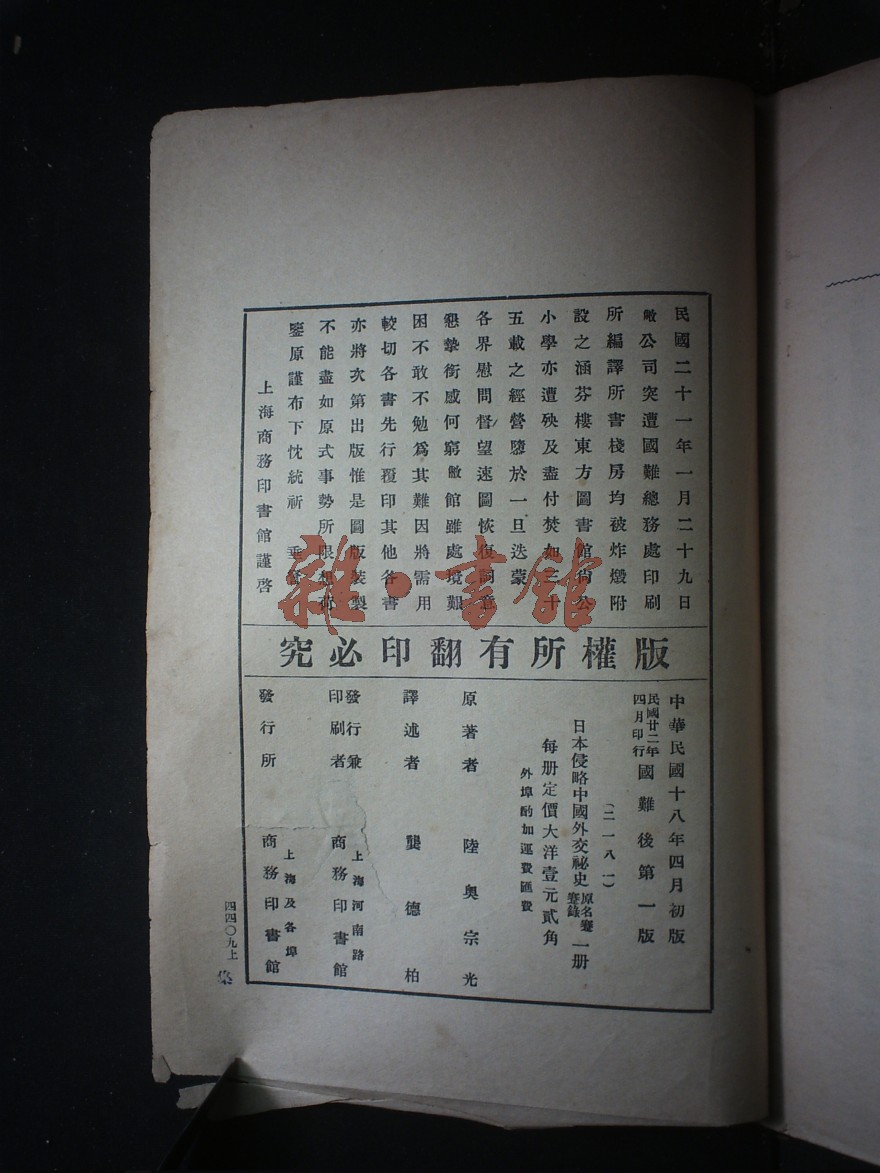 民國二十一年一月二十九日
敝公司突遭國難總務處印刷
所編譯所書棧房均被炸燬附
設之涵芬樓東方圖書館尚公
小學亦遭殃及盡付焚如三十
五載之經營墮於一旦迭蒙
各界慰問督望速圖恢復詞意
懇摯銜感何窮敝館雖處境艱
困不敢不勉爲其難因將需用
較切各書先行覆印其他各書
亦將次第出版惟是圖版裝製
不能盡如原式事勢所限想荷
鑒原謹布下忱統祈 垂詧
上海商務印書館謹啓
究必印翻有所權版
中華民國十八年四月初版
民國廿二年四月印行 國難後第一版
(二一八一)
日本侵略中國外交祕史 原名蹇蹇錄 一册
每册定價大洋壹元貳角
外埠酌加運費匯費
原著者 陸奥宗光
譯述者 龔德柏
發行兼印刷者 上海河南路 商務印書館
發行所 上海及各埠 商務印書館
四四〇九上
集
雜·書館